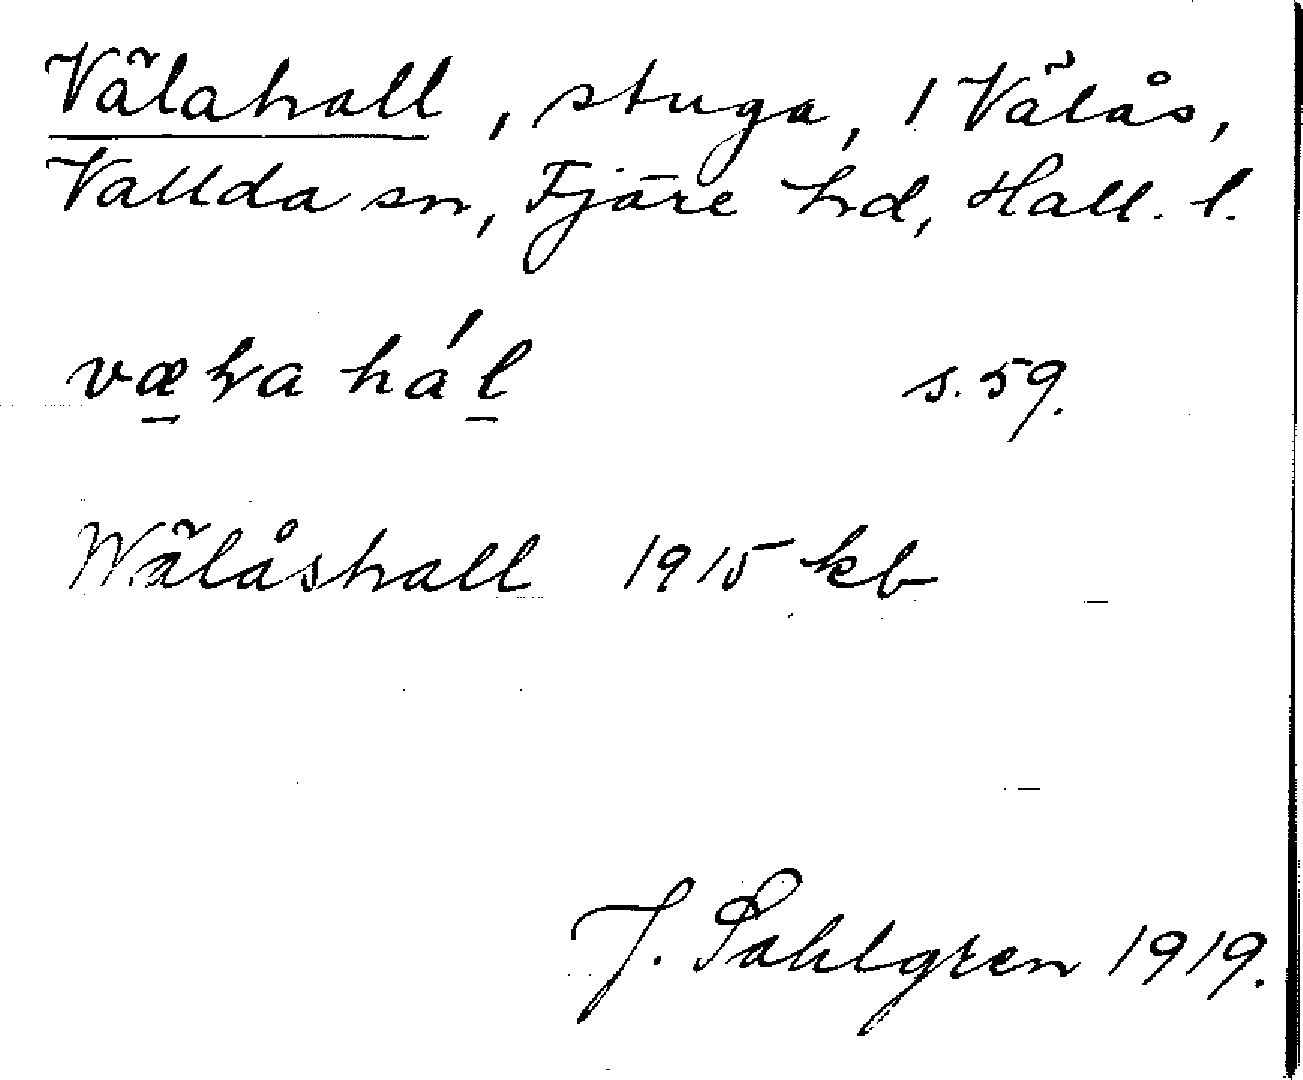 Välahall, stuga, 1 Välås,
Vallda sn, Fjäre hd, Hall. l.
s. 59.
Wälåshall 1915 kb
J. Sahlgren 1919.